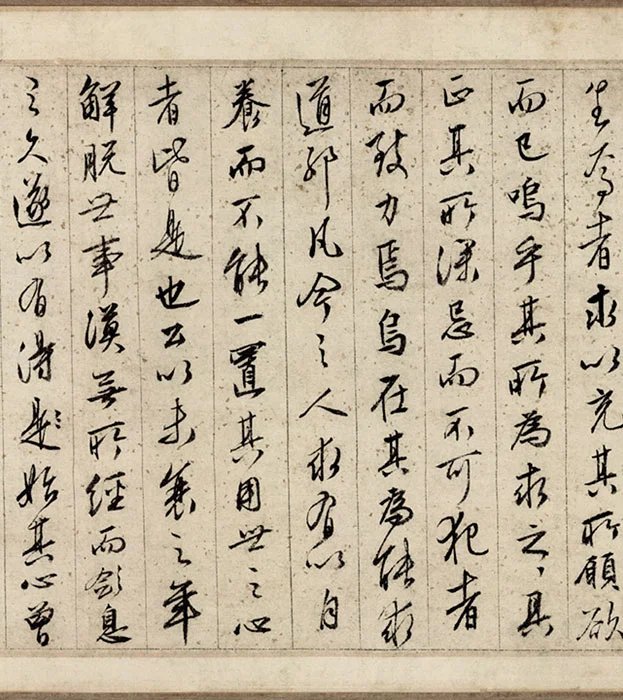 生為者求以充其所願欲
而已嗚乎其所為求之〻具
正其所深忌而不可犯者
而致力焉烏在其為能求
道耶凡今之人求有以自
養而不能一置其用世之心
者皆是也公以未衰之年
解脫世事漠無所經而斂息
之久遂以有得是始其心曾